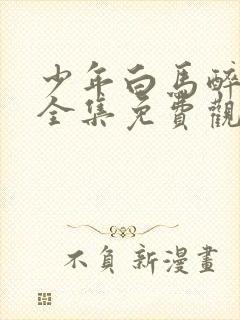 少年白馬醉
全集免費觀
不負新漫畫